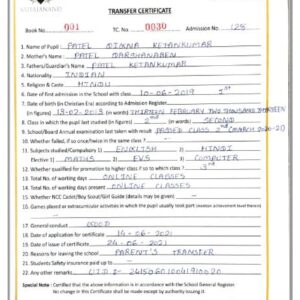 SUYAJANAND
TRANSFER CERTIFICATE
Book No. 001 TC. No. 0030 Admission No. 128
1. Name of Pupil : PATEL KETANKUMAR
2. Mother's Name : PATEL DARSHANABEN
3. Father's/Guardian's Name PATEL KETANKUMAR
4. Nationality INDIAN
5. Religion & Caste HINDU
6. Date of first admission in the School with class 10-06-2019 1st
7. Date of birth (in Christian Era) according to Admission Register
(in figures) 13-02-2013 (in words) THIRTEEN FEBRUARY TWO THOUSAND THIRTEEN
8. Class in which the pupil last studied (in figures) 2nd (in words) SECOND
9. School/Board Annual examination last taken with result PASSED CLASS 2nd (MARCH 2020-21)
10. Whether failed, if so once/twice in the same class
11. Subjects studied/Compulsory 1) ENGLISH HINDI
Elective 1) MATHS EVS COMPUTER
12. Whether qualified for promotion to higher class if so to which class 3rd
13. Total No. of working days ONLINE CLASSES
14. Total No. of working days present ONLINE CLASSES
15. Whether NCC Cadet/Boy Scout/Girl Guide (details may be given)
16. Games played or extracurricular activities in which the pupil usually took part (mention achievement level therein)
17. General conduct GOOD
18. Date of application for certificate 14-06-2021
19. Date of issue of certificate 24-06-2021
20. Reasons for leaving the school PARENT'S TRANSFER
21. Students Safety insurance paid up to
22. Any other remarks UID #-
Special Note : Certified that the above information is in accordance with the School General Register
No change in this Certificate shall be made except by authority issuing it